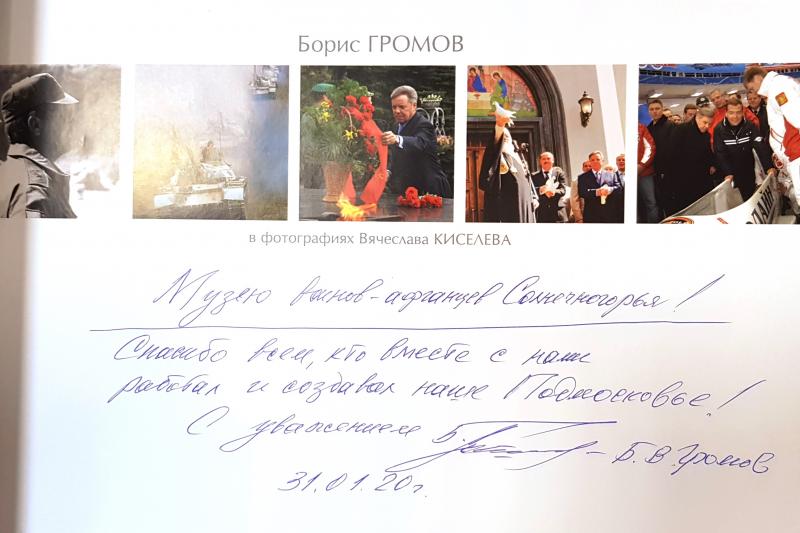 Борис ГРОМОВ
в фотографиях Вячеслава КИСЕЛЕВА
Музею воинов-афганцев Солнечногорья!
Спасибо всем, кто вместе с нами
работал и создавал наше Подмосковье!
С уважением Б. Громов - Б.В.Громов
31.01.20г.